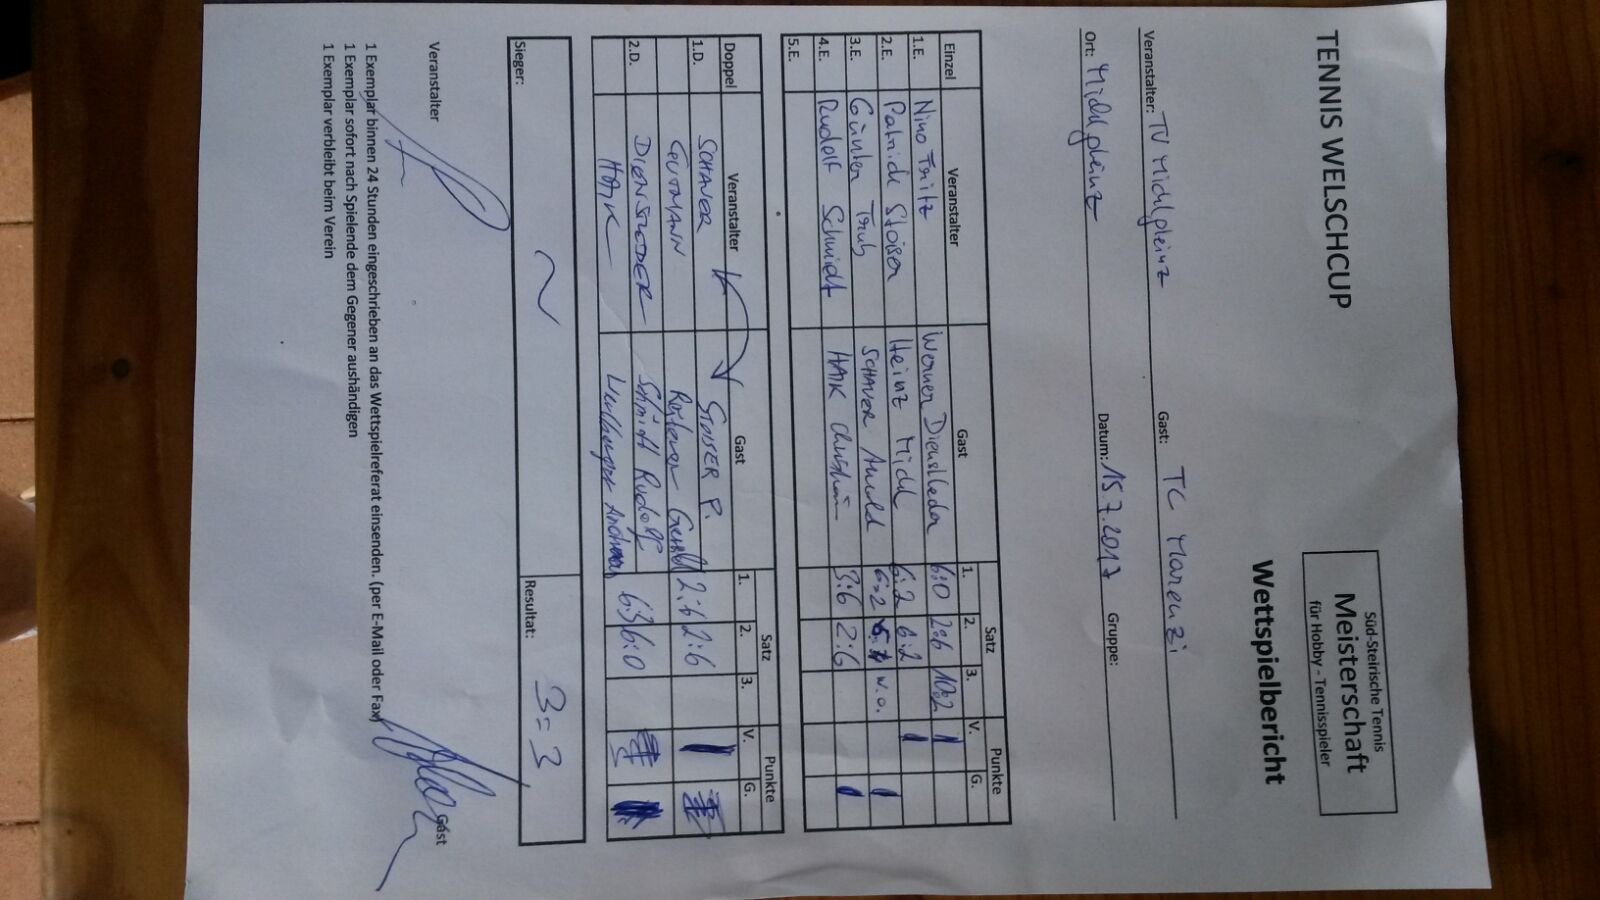 TENNIS WELSCHCUP
Süd-Steirische Tennis
Meisterschaft
für Hobby - Tennisspieler
Wettspielbericht
Veranstalter: TV Michlgleinz Gast: TC Marenzi
Ort: Michlgleinz Datum: 15.7.2017 Gruppe:
Einzel Veranstalter Gast Satz Punkte
1. 2. 3. V. G.
1.E. Nino Fritz Werner Dienstleder 6:0 2:6 10:2 1
2.E. Patrick Stoiser Heinz Michl 6:2 6:2 1
3.E. Günter Trub SCHAUER Arnold 6:2 w.o. 1
4.E. Rudolf Schmidt HAIK Christian 3:6 2:6 1
5.E.
Doppel Veranstalter Gast Satz Punkte
1. 2. 3. V. G.
1.D. SCHAUER STOISER P. 2:6 2:6
GUTMANN
2.D. DIENSTLEDER Schmidt Rudolf 6:3 6:0
HAIK Andreas
Sieger: ~ Resultat: 3:3
Veranstalter Gast
1 Exemplar binnen 24 Stunden eingeschrieben an das Wettspielreferat einsenden. (per E-Mail oder Fax)
1 Exemplar sofort nach Spielende dem Gegener aushändigen
1 Exemplar verbleibt beim Verein